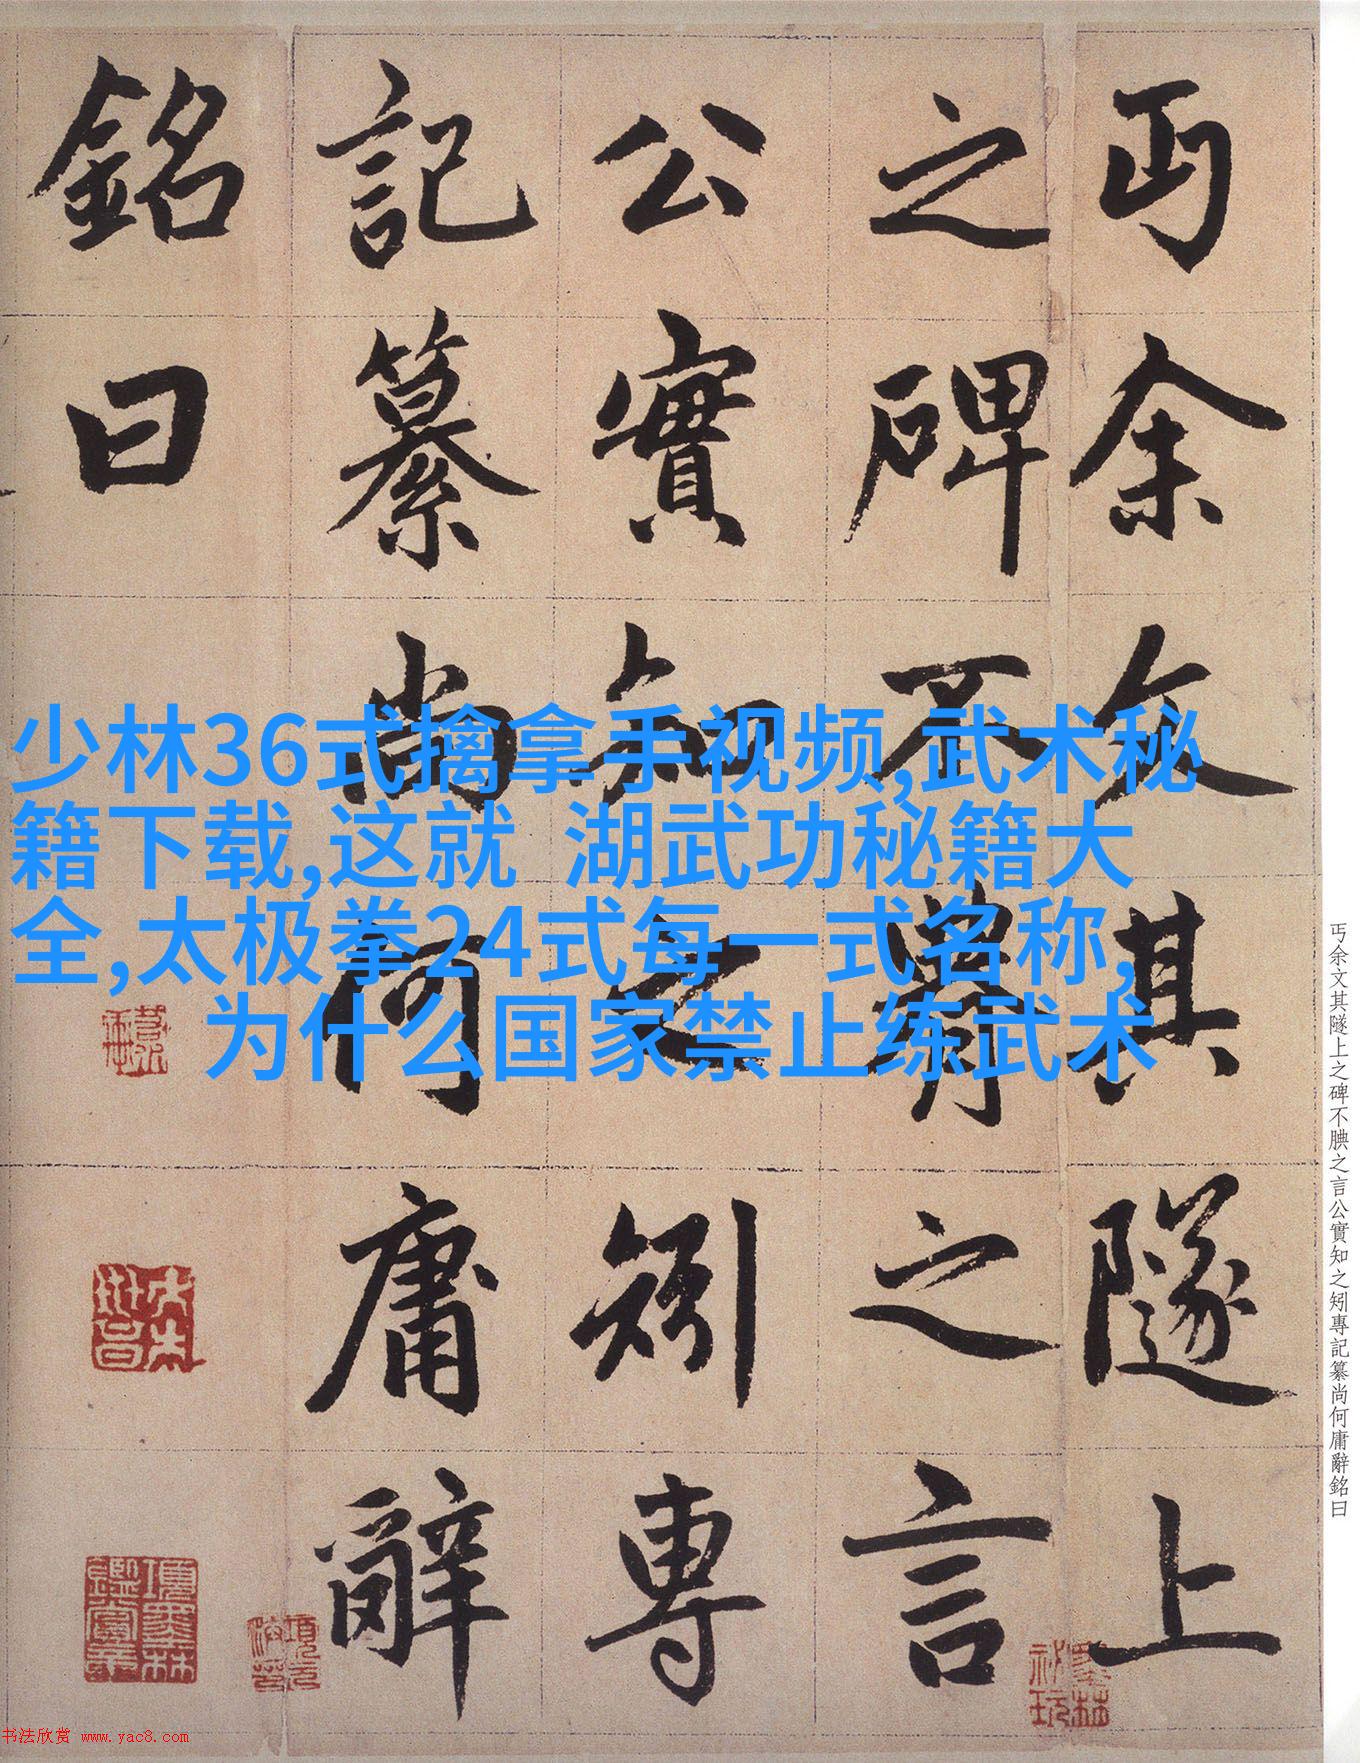 丐余文其隧上
之碑不腆之言
公實知之矧專
記纂尚何庸辭
銘曰
少林36式擒拿手视频,武术秘
籍下载,这就 湖武功秘籍大
全,太极拳24式每一式名称,
为什么国家禁止练武术
丐余文其隧上之碑不腆之言公實知之矧專記纂尚何庸辭銘曰
項墨林鑑賞章
墨林祕玩
书法欣赏 www.yac8.com